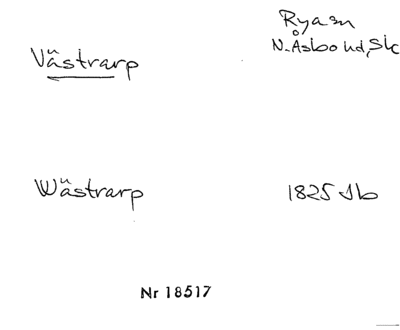 Rya sn
Västrarp
N. Åsbo hd, Sk
Wästrarp
1825 Jb
Nr 18517